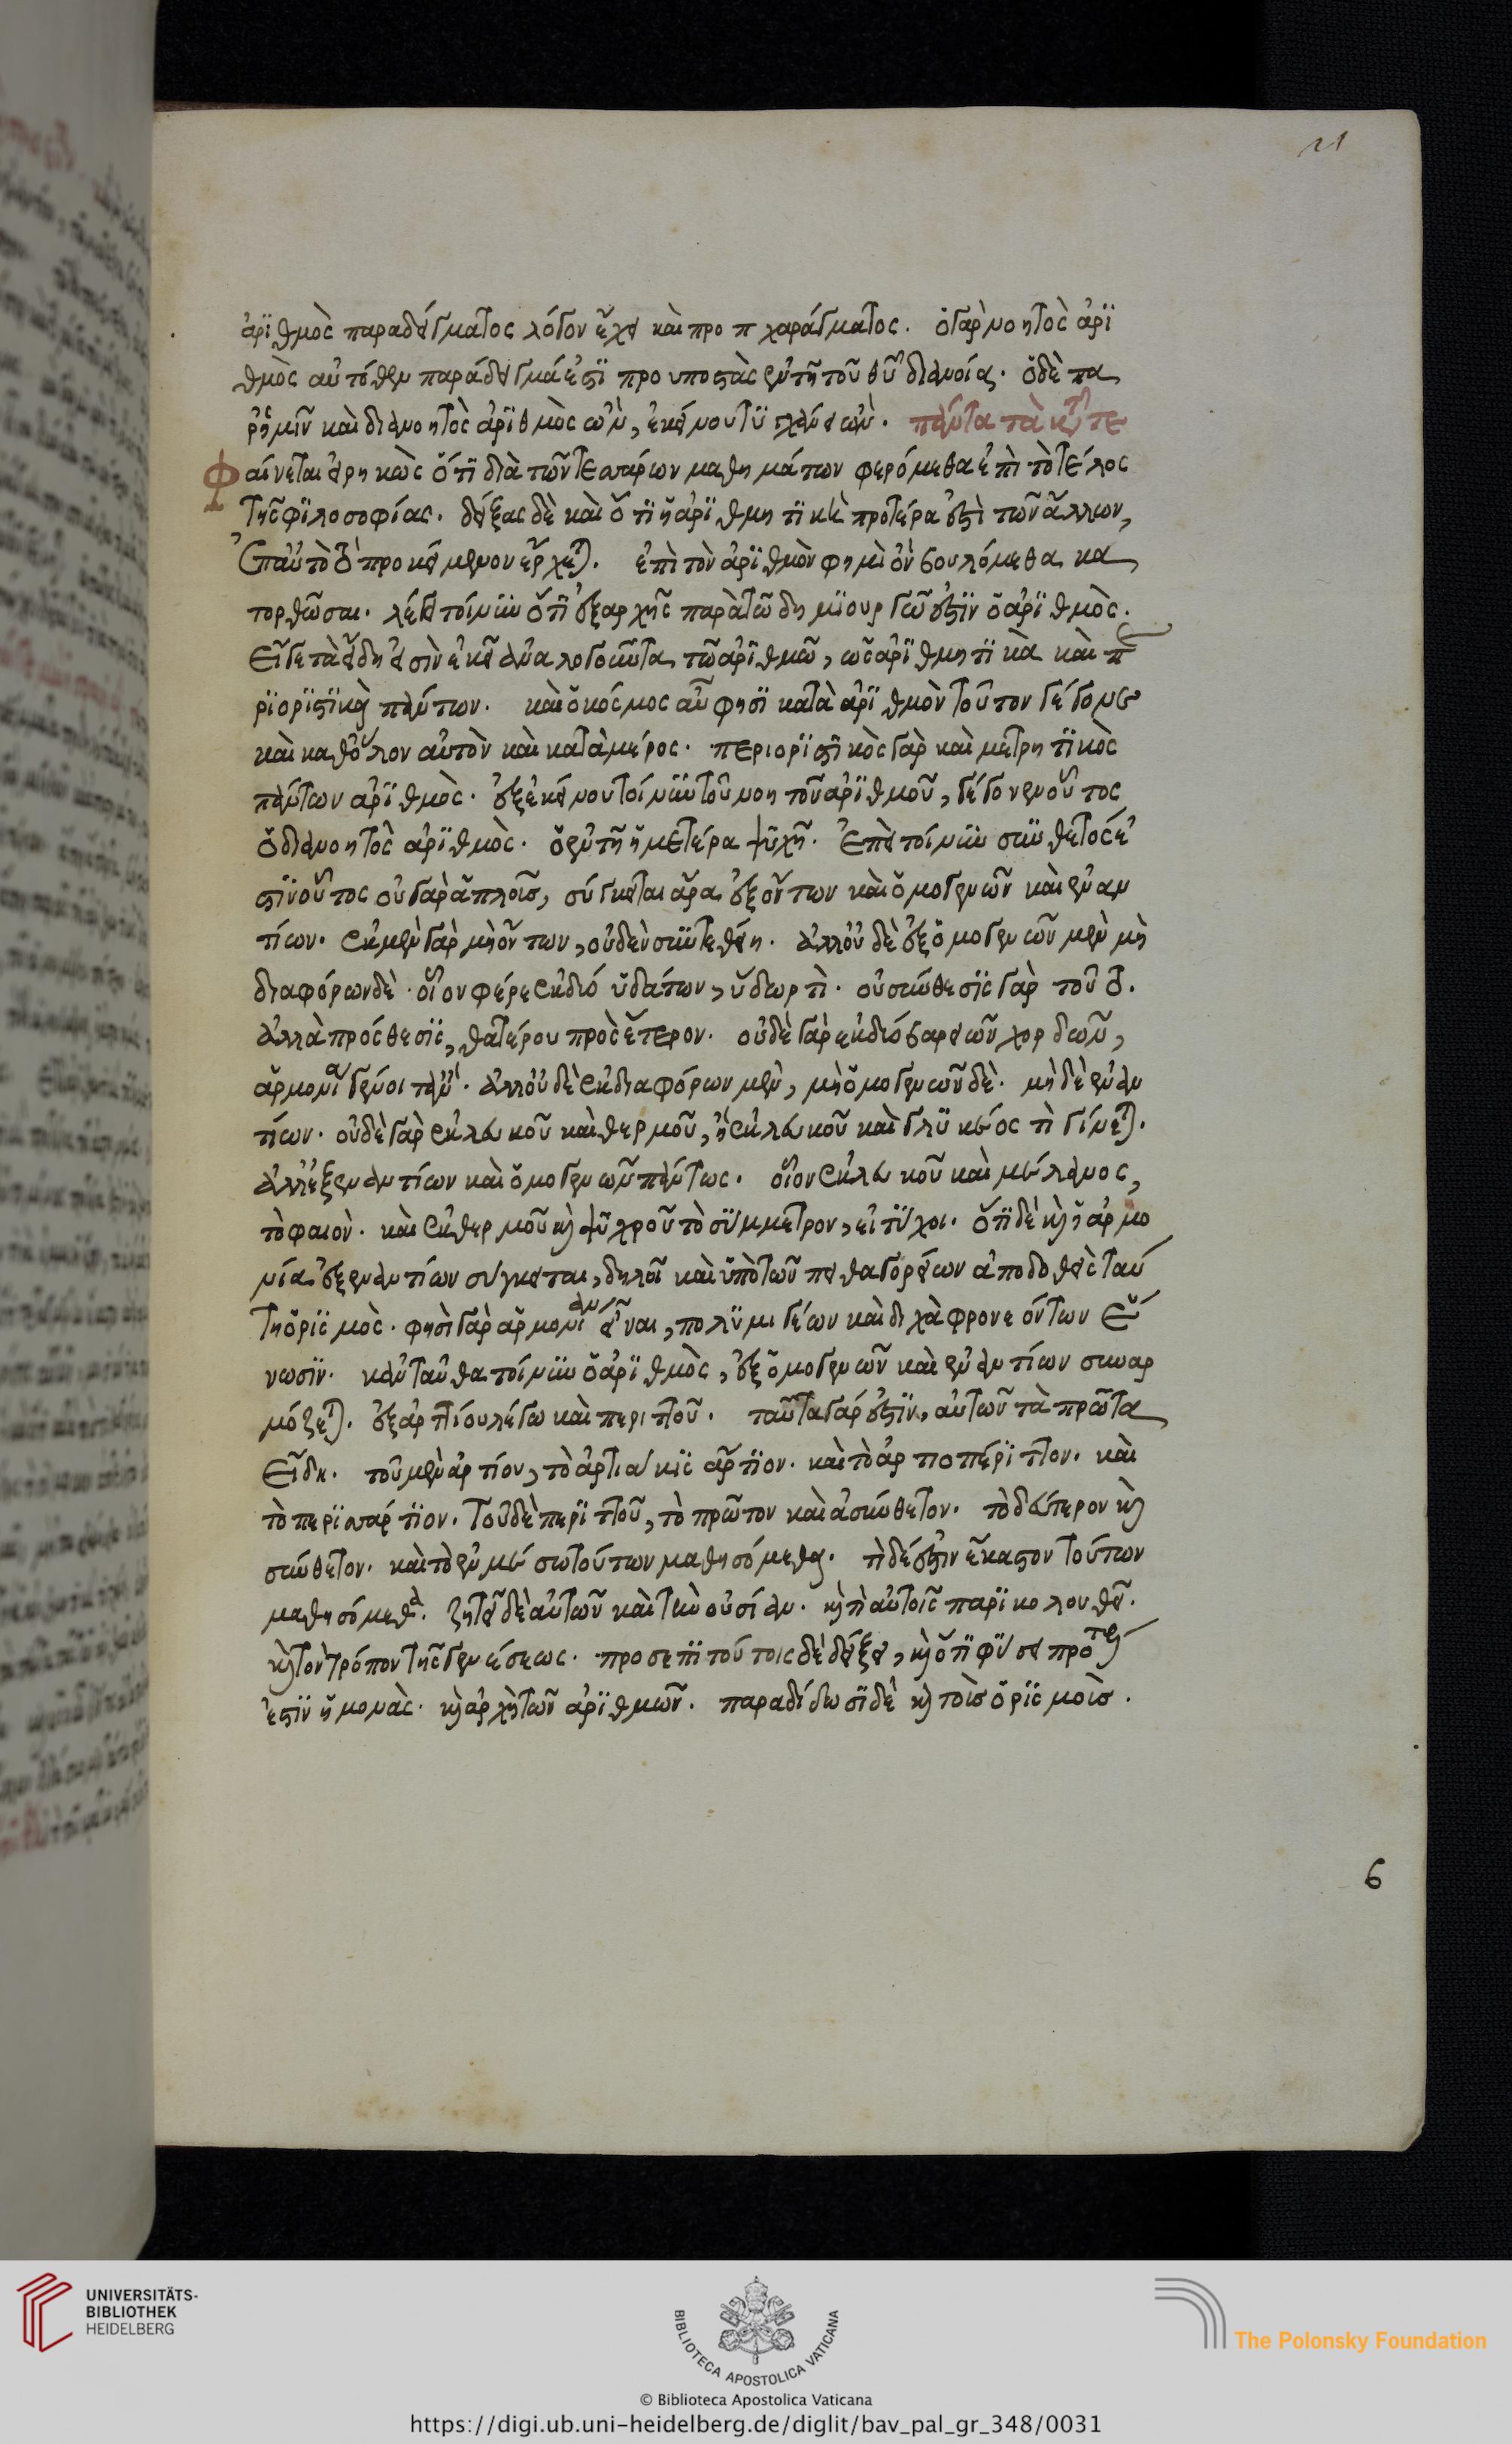 21
ἀρϊθμὸς παραδείγματος λόγον ἔχει καὶ προ π χαράγματος. ὁ γὰρ νοητὸς ἀρϊ
θμὸς αὐτόθεν παράδειγμά ἐστϊ προυποστὰς ἐν τῆ τοῦ θῦ διανοία. ὁ δὲ πα
ρ' ἡμῖν καὶ διανοητὸς ἀρϊθμὸς ὢν, ἐκείνου τϋγχάνει ὢν. πάντα τὰ κτ τε
Φαίνεται εἰρηκὼς ὅτϊ διὰ τῶν τεσσάρων μαθημάτων φερόμεθα ἐπὶ τὸ τέλος
τῆς φϊλοσοφίας. δείξας δὲ καὶ ὅτϊ ἡ ἀρϊθμητϊκὴ προτέρα ἐστὶ τῶν ἄλλων,
ἐπ' αὐτὸ προκείμενον ἔρχεται. ἐπὶ τὸν ἀρϊθμὸν φημὶ ὃν βουλόμεθα κα
τορθῶσαι. λέγει τοίνυν ὅτϊ ἐξ ἀρχῆς παρὰ τῶ δημϊουργῶ ἐστϊν ὁ ἀρϊθμὸς.
εἴγε τὰ εἴδη εἰσὶν ἐκεῖ ἀναλογοῦντα τῶ ἀρϊθμῶ, ὡς ἀρϊθμητϊκὰ καὶ πε
ρϊορϊστϊκὰ πάντων. καὶ ὁ κόσμος αὖ φησϊ κατὰ ἀρϊθμὸν τοῦτον γέγονε
καὶ καθόλον αὐτὸν καὶ κατὰ μέρος. περιορϊστϊκὸς γὰρ καὶ μετρητϊκὸς
πάντων ἀρϊθμὸς. ἐξ ἐκείνου τοίνυν τοῦ νοητοῦ ἀρϊθμοῦ, γέγονεν οὗτος
ὁ διανοητὸς ἀρϊθμὸς. ὁ ἐν τῆ ἡμετέρα ψϋχῆ. ἐπεὶ τοίνυν σύνθετός ἐ
στϊν οὗτος οὐ γὰρ ἁπλοῖς, σύγκειται ἄρα ἐξ ὄντων καὶ ὁμογενῶν καὶ ἐναν
τίων. ἐκ μὲν γὰρ μὴ ὄντων, οὐδὲν συντεθείη. ἀλλ' οὐδὲ ἐξ ὁμογενῶν μὲν μὴ
διαφόρων δὲ. οἷον φέρε ἐκ δύο ὑδάτων, ὕδωρ τὶ. οὐ σύνθεσϊς γὰρ τοῦ.
ἀλλὰ πρόσθεσϊς, θατέρου πρὸς ἕτερον. οὐδὲ γὰρ ἐκ δύο βαρειῶν χορδῶν,
ἁρμονία γένοιτ' ἄν. ἀλλ' οὐδὲ ἐκ διαφόρων μὲν, μὴ ὁμογενῶν δὲ. μὴ δὲ ἐναν
τίων. οὐδὲ γὰρ ἐκ λευκοῦ καὶ θερμοῦ, ἢ ἐκ λευκοῦ καὶ γλϋκέος τὶ γίνεται.
ἀλλ' ἐξ ἐναντίων καὶ ὁμογενῶν πάντως. οἷον ἐκ λευκοῦ καὶ μέλανος,
τὸ φαιὸν. καὶ ἐκ θερμοῦ κὴ ψϋχροῦ τὸ σύμμετρον, εἰ τύχοι. ὅτϊ δὲ κὴ ἡ ἁρμο
νία ἐξ ἐναντίων σύγκειται, δηλοῖ καὶ ὑπὸ τῶν πειθαγορείων ἀποδοθεὶς ταύ
της ὁρϊσμὸς. φησὶ γὰρ ἁρμονίαν εἶναι, πολϋμιγέων καὶ διχὰ φρονεόντων ἕ
νωσϊν. κἀνταῦθα τοίνυν ὁ ἀρϊθμὸς, ἐξ ὁμογενῶν καὶ ἐναντίων συναρ
μόζεται. ἐξ ἀρτίου λέγω καὶ περιττοῦ. ταῦτα γάρ ἐστϊν, αὐτῶν τὰ πρῶτα
εἴδη. τοῦ μὲν ἀρτίου, τὸ ἀρτιάκϊς ἄρτϊον. καὶ τὸ ἀρτιοπέρϊττον. καὶ
τὸ περϊσσάρτϊον. τοῦ δὲ περϊττοῦ, τὸ πρῶτον καὶ ἀσύνθετον. τὸ δεύτερον κὴ
σύνθετον. καὶ τὸ ἐν μέσω τούτων μαθησόμεθα. τὶ δέ ἐστϊν ἕκαστον τούτων
μαθησόμεθα. ζητεῖ δὲ αὐτῶν καὶ τὴν οὐσίαν. κὴ τὶ αὐτοῖς παρϊκολουθεῖ.
κὴ τὸν τρόπον τῆς γενέσεως. προσεπϊ τούτοις δὲ δείξει, κὴ ὅτϊ φύσει προτέρα
ἐστϊν ἡ μονὰς. κὴ ἀρχὴ τῶν ἀρϊθμῶν. παραδίδωσϊ δὲ κὴ τοὶς ὁρϊσμοὶς.
6
UNIVERSITÄTS-
BIBLIOTHEK
HEIDELBERG
BIBLIOTECA APOSTOLICA VATICANA
The Polonsky Foundation
© Biblioteca Apostolica Vaticana
https://digi.ub.uni-heidelberg.de/diglit/bav_pal_gr_348/0031